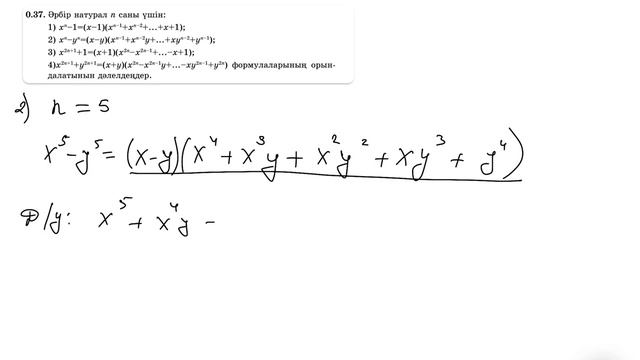 0.37. Әрбір натурал n саны үшін:
1) xⁿ−1=(x−1)(xⁿ⁻¹+xⁿ⁻²+...+x+1);
2) xⁿ−yⁿ=(x−y)(xⁿ⁻¹+xⁿ⁻²y+...+xyⁿ⁻²+yⁿ⁻¹);
3) x²ⁿ⁺¹+1=(x+1)(x²ⁿ−x²ⁿ⁻¹+...−x+1);
4)x²ⁿ⁺¹+y²ⁿ⁺¹=(x+y)(x²ⁿ−x²ⁿ⁻¹y+...−xy²ⁿ⁻¹+y²ⁿ) формулаларының орын-
далатынын дәлелдеңдер.
2) n = 5
x⁵−y⁵=(x−y)(x⁴+x³y+x²y²+xy³+y⁴)
Д/у: x⁵+x⁴y −